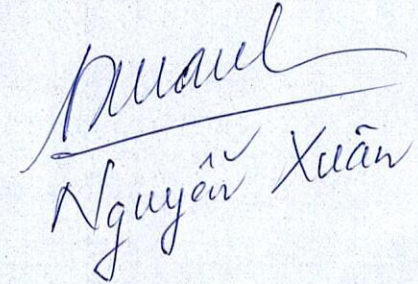 Nguyễn Xuân